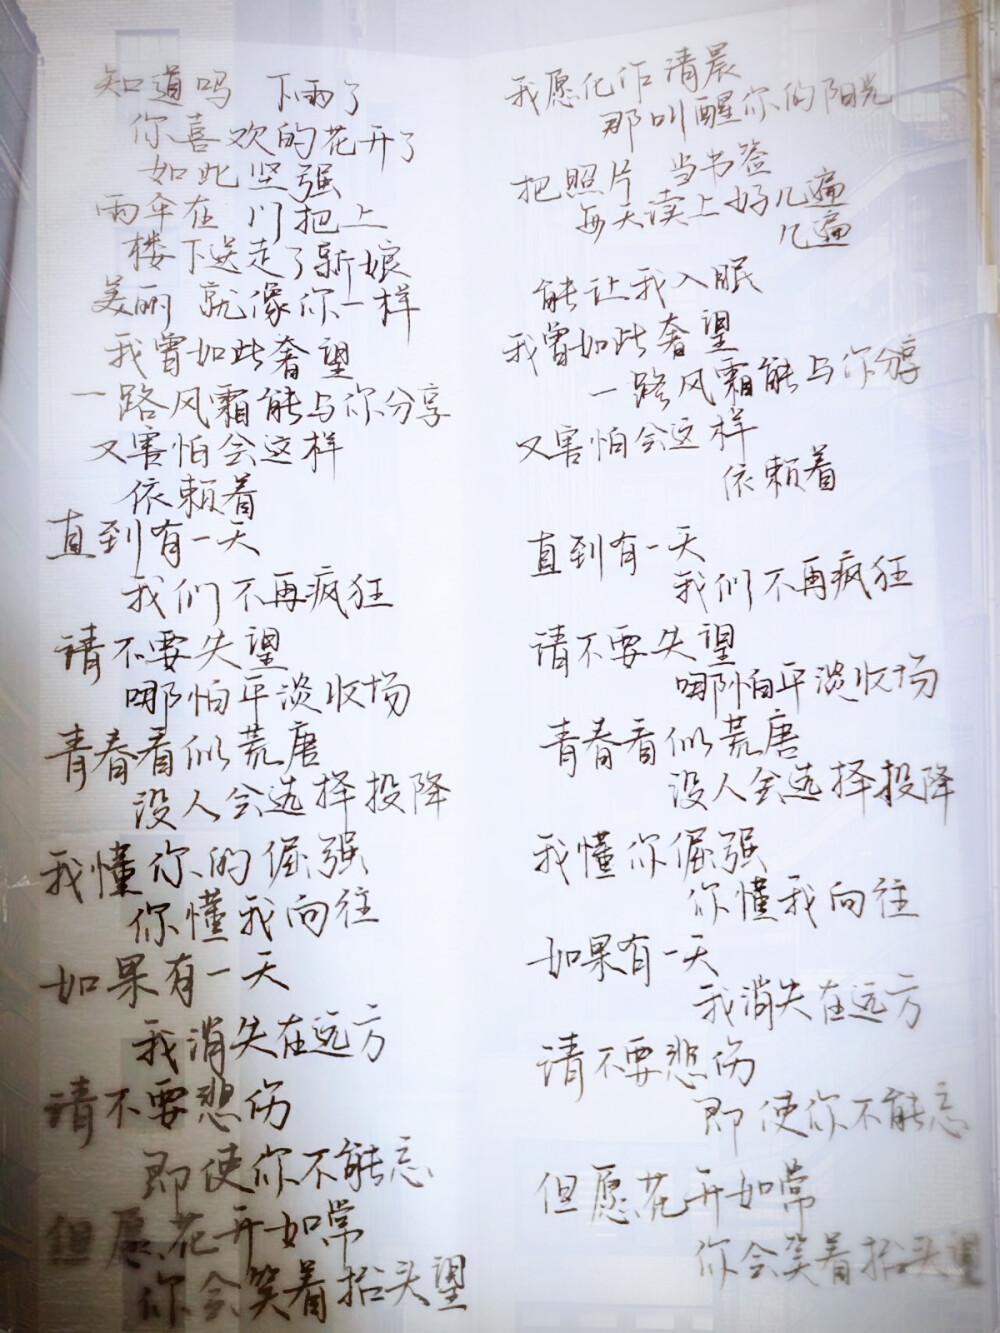 知道吗 下雨了
你喜欢的花开了
如此坚强
雨伞在门把上
楼下送走了新娘
美丽 就像你一样
我曾如此奢望
一路风霜能与你分享
又害怕会这样
依赖着
直到有一天
我们不再疯狂
请不要失望
哪怕平淡收场
青春看似荒唐
没人会选择投降
我懂你的倔强
你懂我向往
如果有一天
我消失在远方
请不要悲伤
即使你不能忘
但愿花开如常
你会笑着抬头望
我愿化作清晨
那叫醒你的阳光
把照片 当书签
每天读上好几遍
几遍
能让我入眠
我曾如此奢望
一路风霜能与你分享
又害怕会这样
依赖着
直到有一天
我们不再疯狂
请不要失望
哪怕平淡收场
青春看似荒唐
没人会选择投降
我懂你倔强
你懂我向往
如果有一天
我消失在远方
请不要悲伤
即使你不能忘
但愿花开如常
你会笑着抬头望